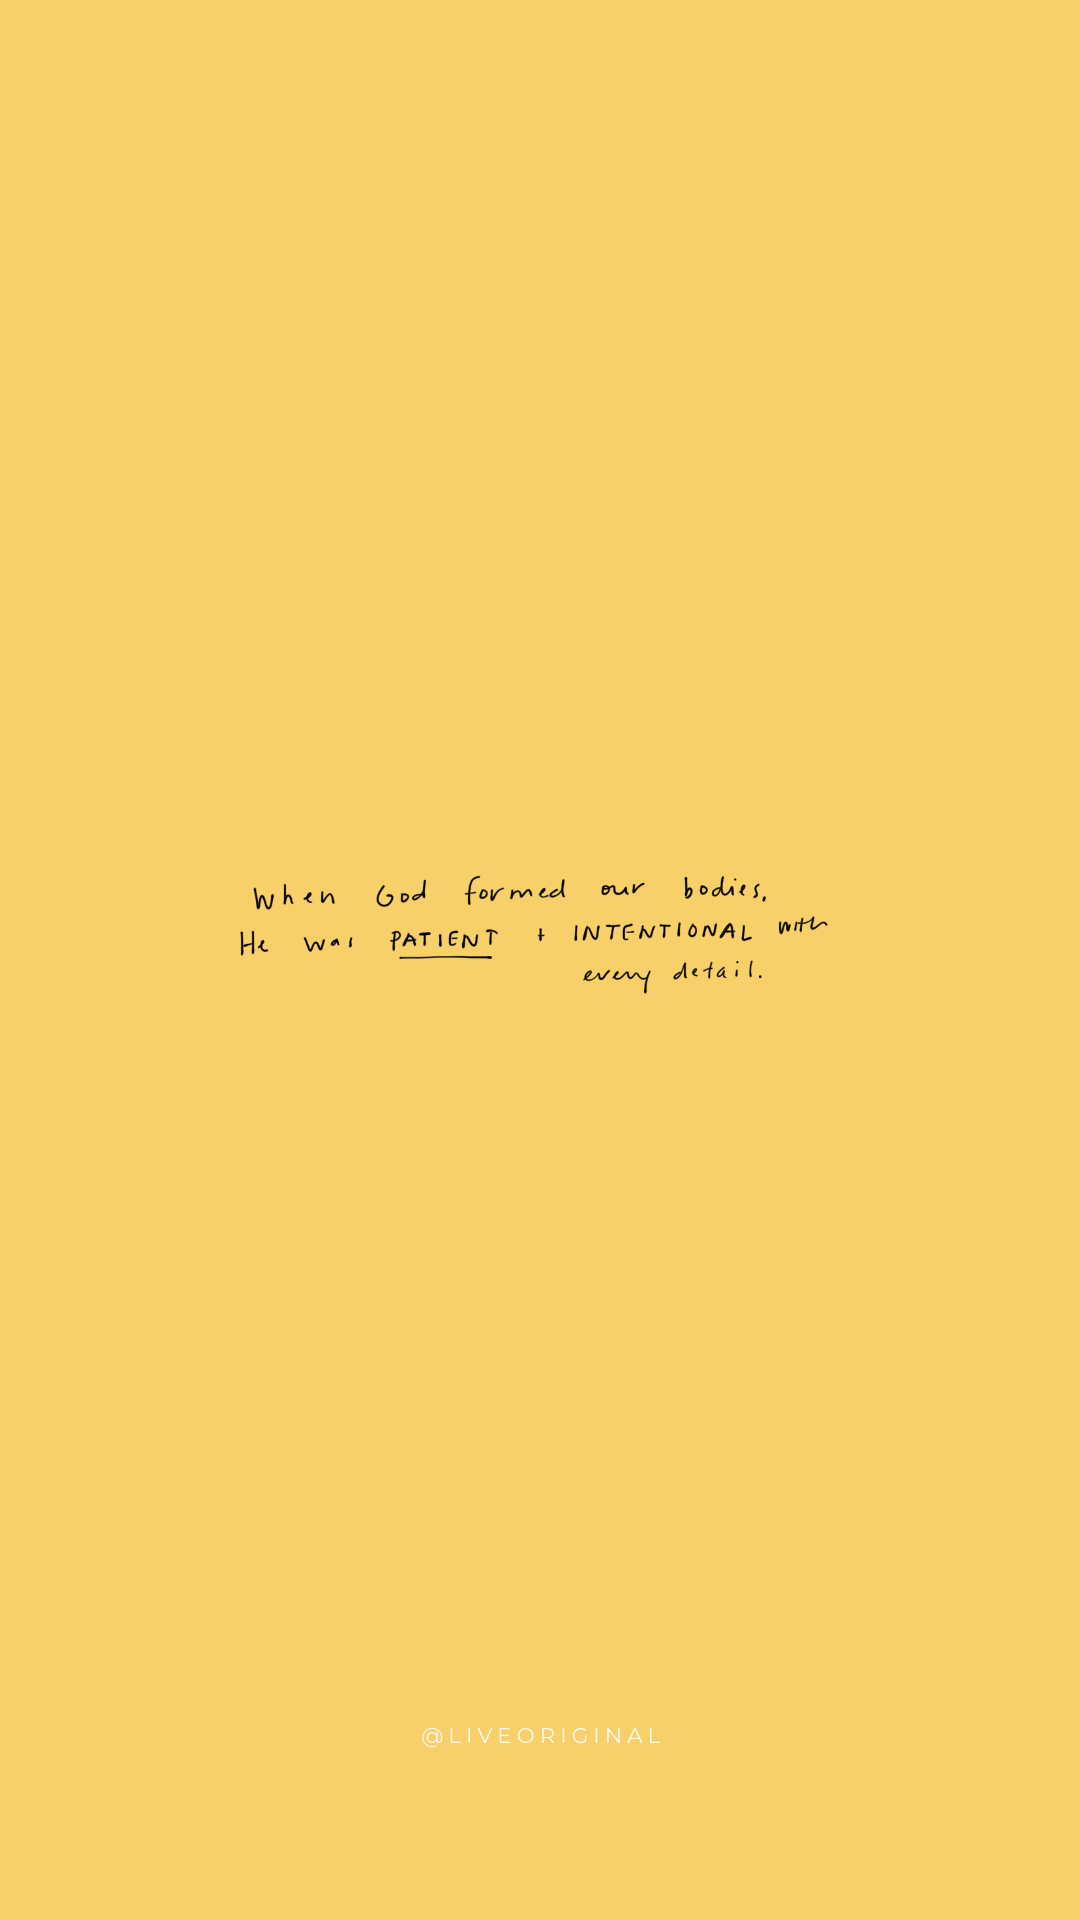 When God formed our bodies,
He was PATIENT + INTENTIONAL with
every detail.
@LIVEORIGINAL